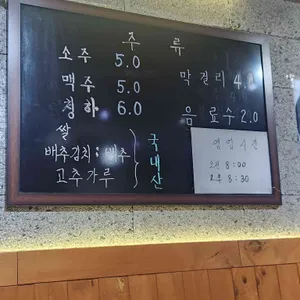 주 류
소주 5.0
맥주 5.0
청하 6.0
막걸리 4.0
음료수 2.0
쌀
배추김치 ; 배추
고추가루
국내산
영업시간
오전 8:00
오후 8:30